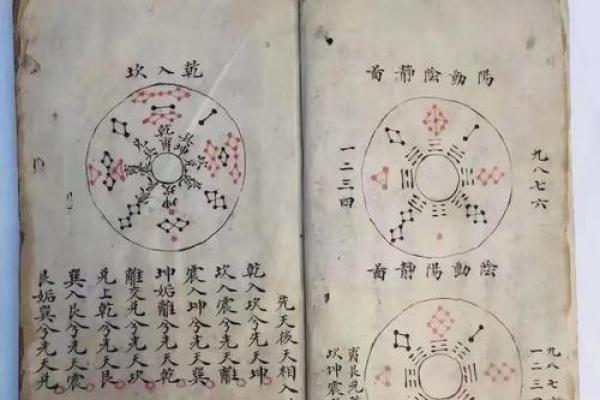 陽動陰靜啚
九八七六
一二三四
陰動陽靜啚
九八七
一二三
坎坤震
乾入坎
先天後天相入
乾入坎兮先天坤
坎入震兮先天離
震入坤兮先天巽
坤姤離兮先天乾
離交兌兮先天坎
兌上乾兮先天艮
巽入艮兮先天震
艮姤巽兮先天兌